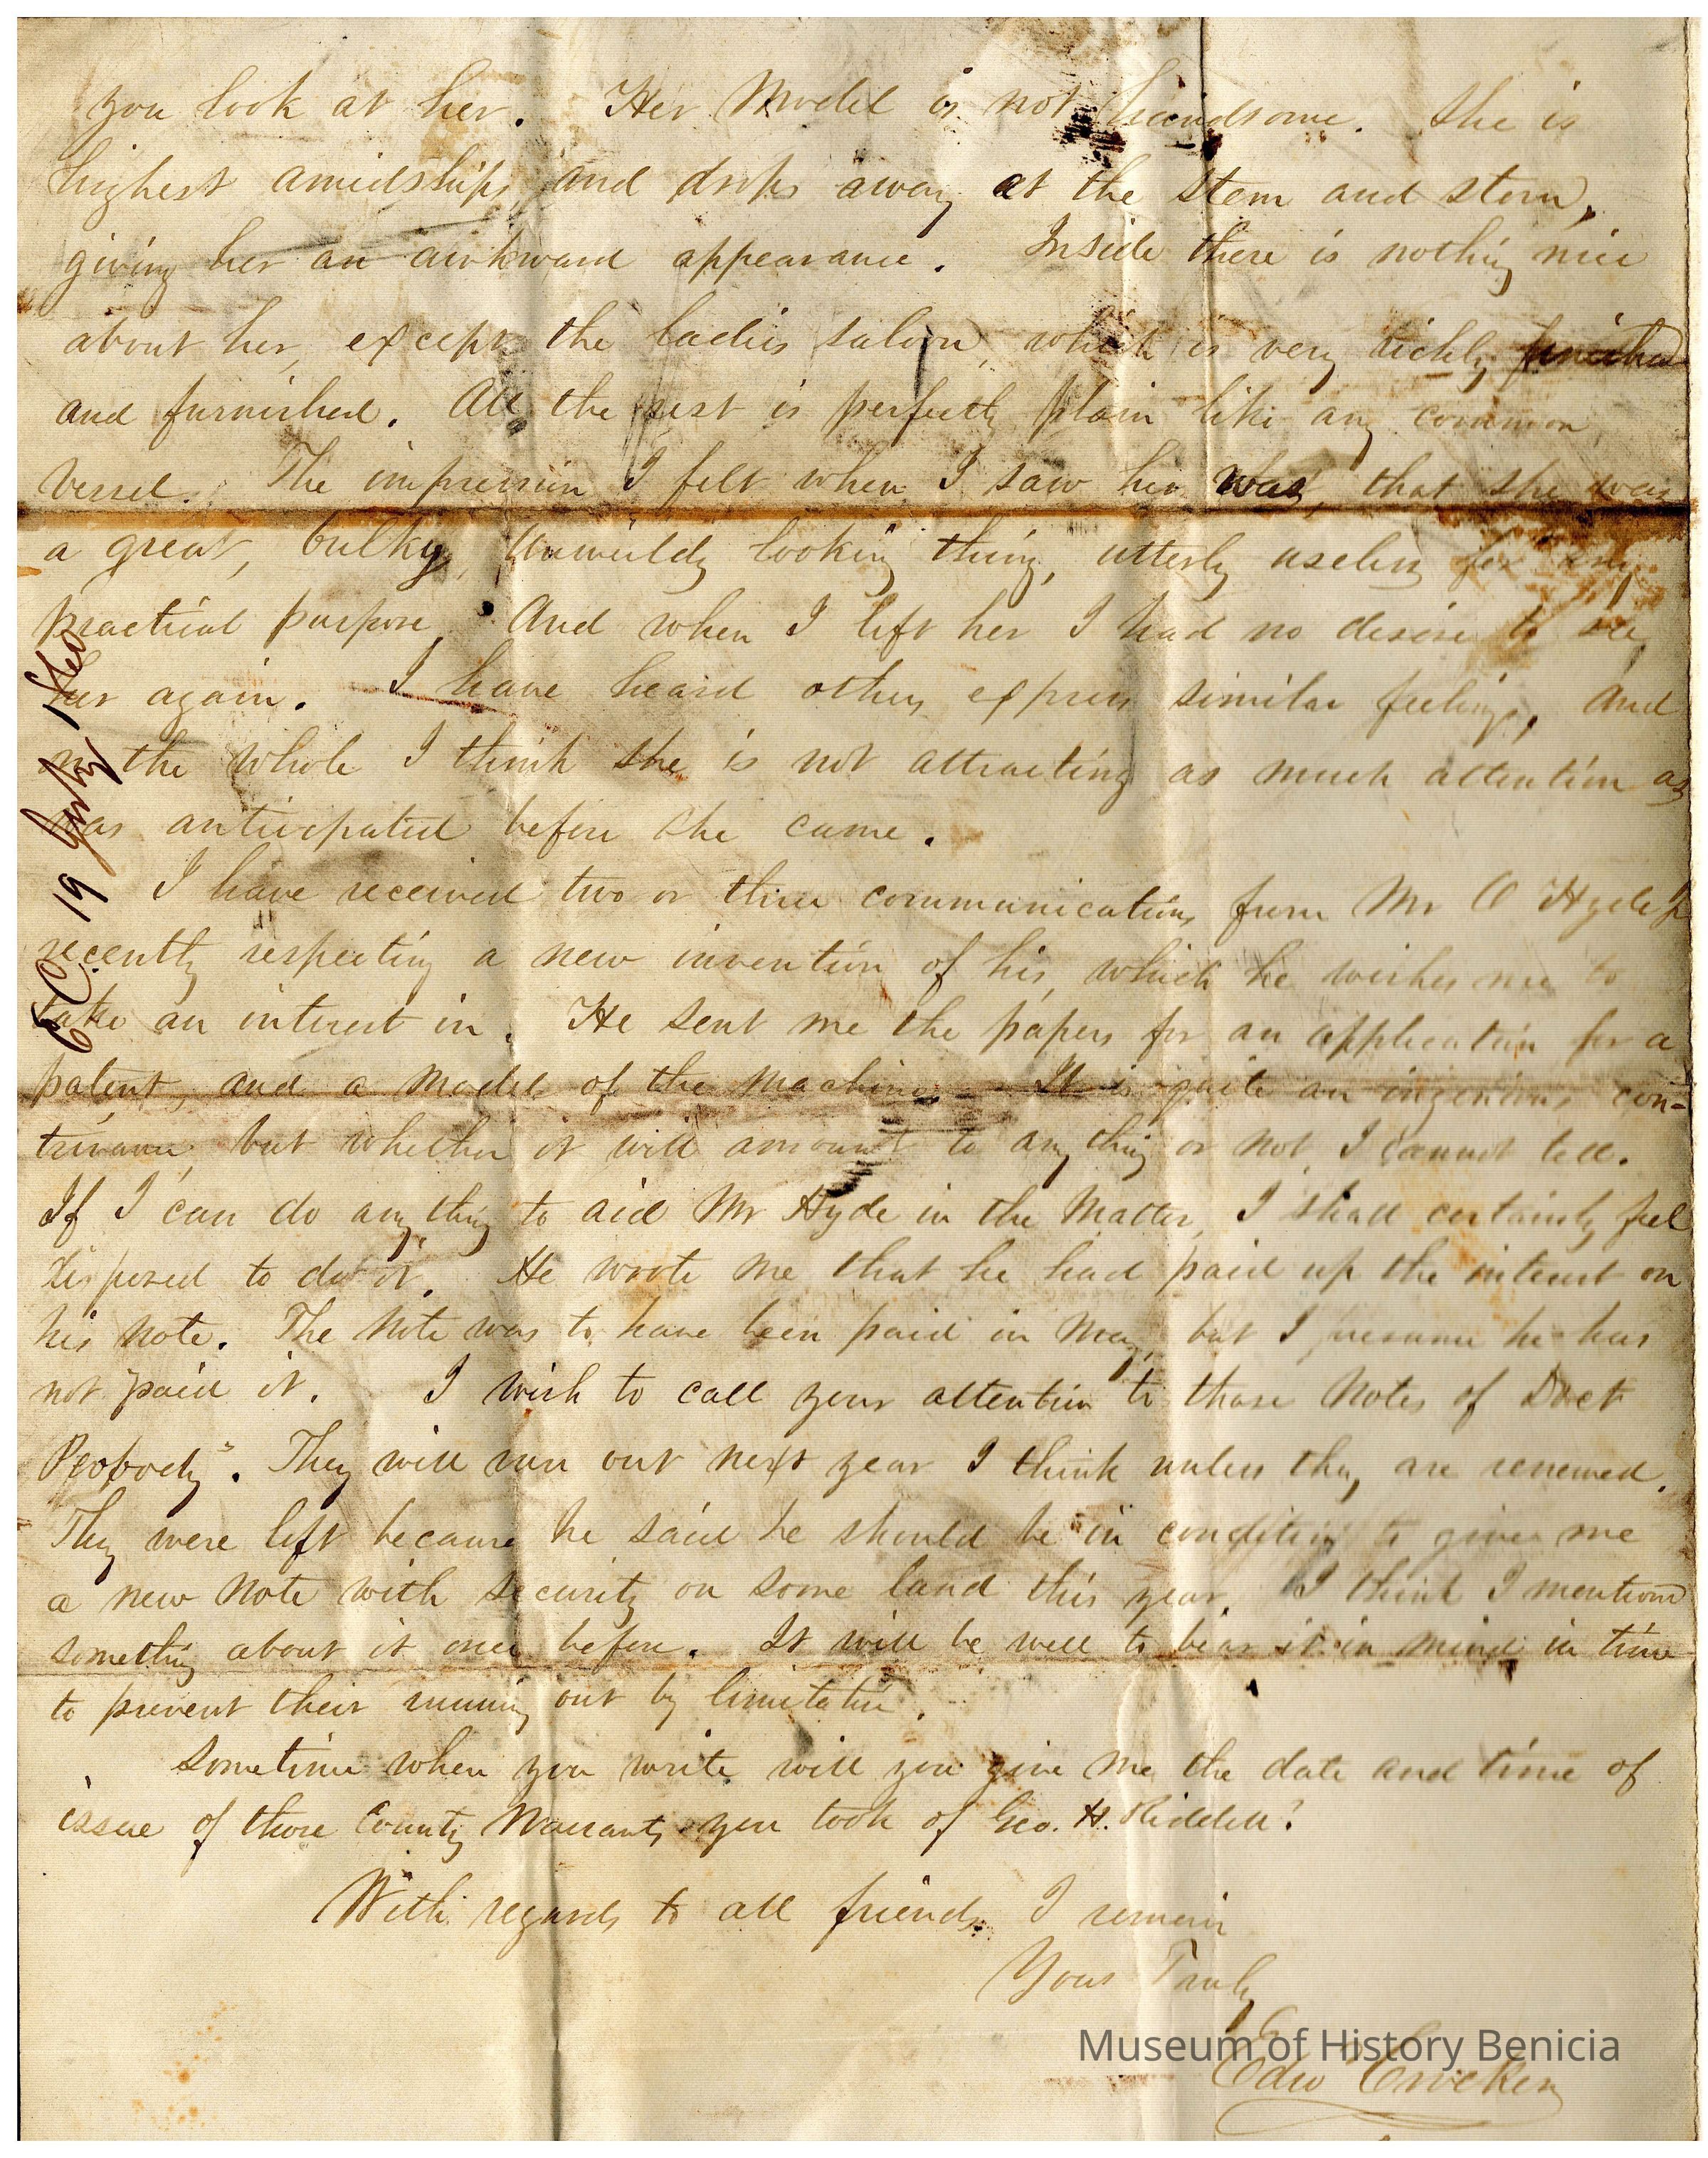 you look at her. Her Model is not handsome. She is
highest amidships, and drops away at the stem and stern,
giving her an awkward appearance. Inside there is nothing nice
about her, except the ladies saloon, which is very richly finished
and furnished. All the rest is perfectly plain like any common
vessel. The impression I felt when I saw her was, that she was
a great, bulky, unwieldy looking thing, utterly useless for any
practical purpose. And when I left her I had no desire to see
her again. I have heard others express similar feelings, and
on the whole I think she is not attracting as much attention as
was anticipated before she came.
I have received two or three communications from Mr O Hyde
recently respecting a new invention of his, which he wishes me to
take an interest in. He sent me the papers for an application for a
patent, and a model of the machine. It is quite an ingenious con-
trivance, but whether it will amount to any thing or not, I cannot tell.
If I can do any thing to aid Mr Hyde in the Matter, I shall certainly feel
disposed to do it. He wrote me that he had paid up the interest on
his note. The note was to have been paid in May, but I presume he has
not paid it. I wish to call your attention to those Notes of Doct
Peobody". They will run out next year I think unless they are renewed.
They were left because he said he should be in condition to give me
a new Note with security on some land this year. I think I mentiond
something about it once before. It will be well to bear it in mind in time
to prevent their running out by limitation.
Sometime when you write will you give me the date and time of
issue of those County Warrants you took of Geo. H. Riddell?
With regards to all friends I remain
Yours Truly
Edw Crocker
EC 19 July 1860
Museum of History Benicia